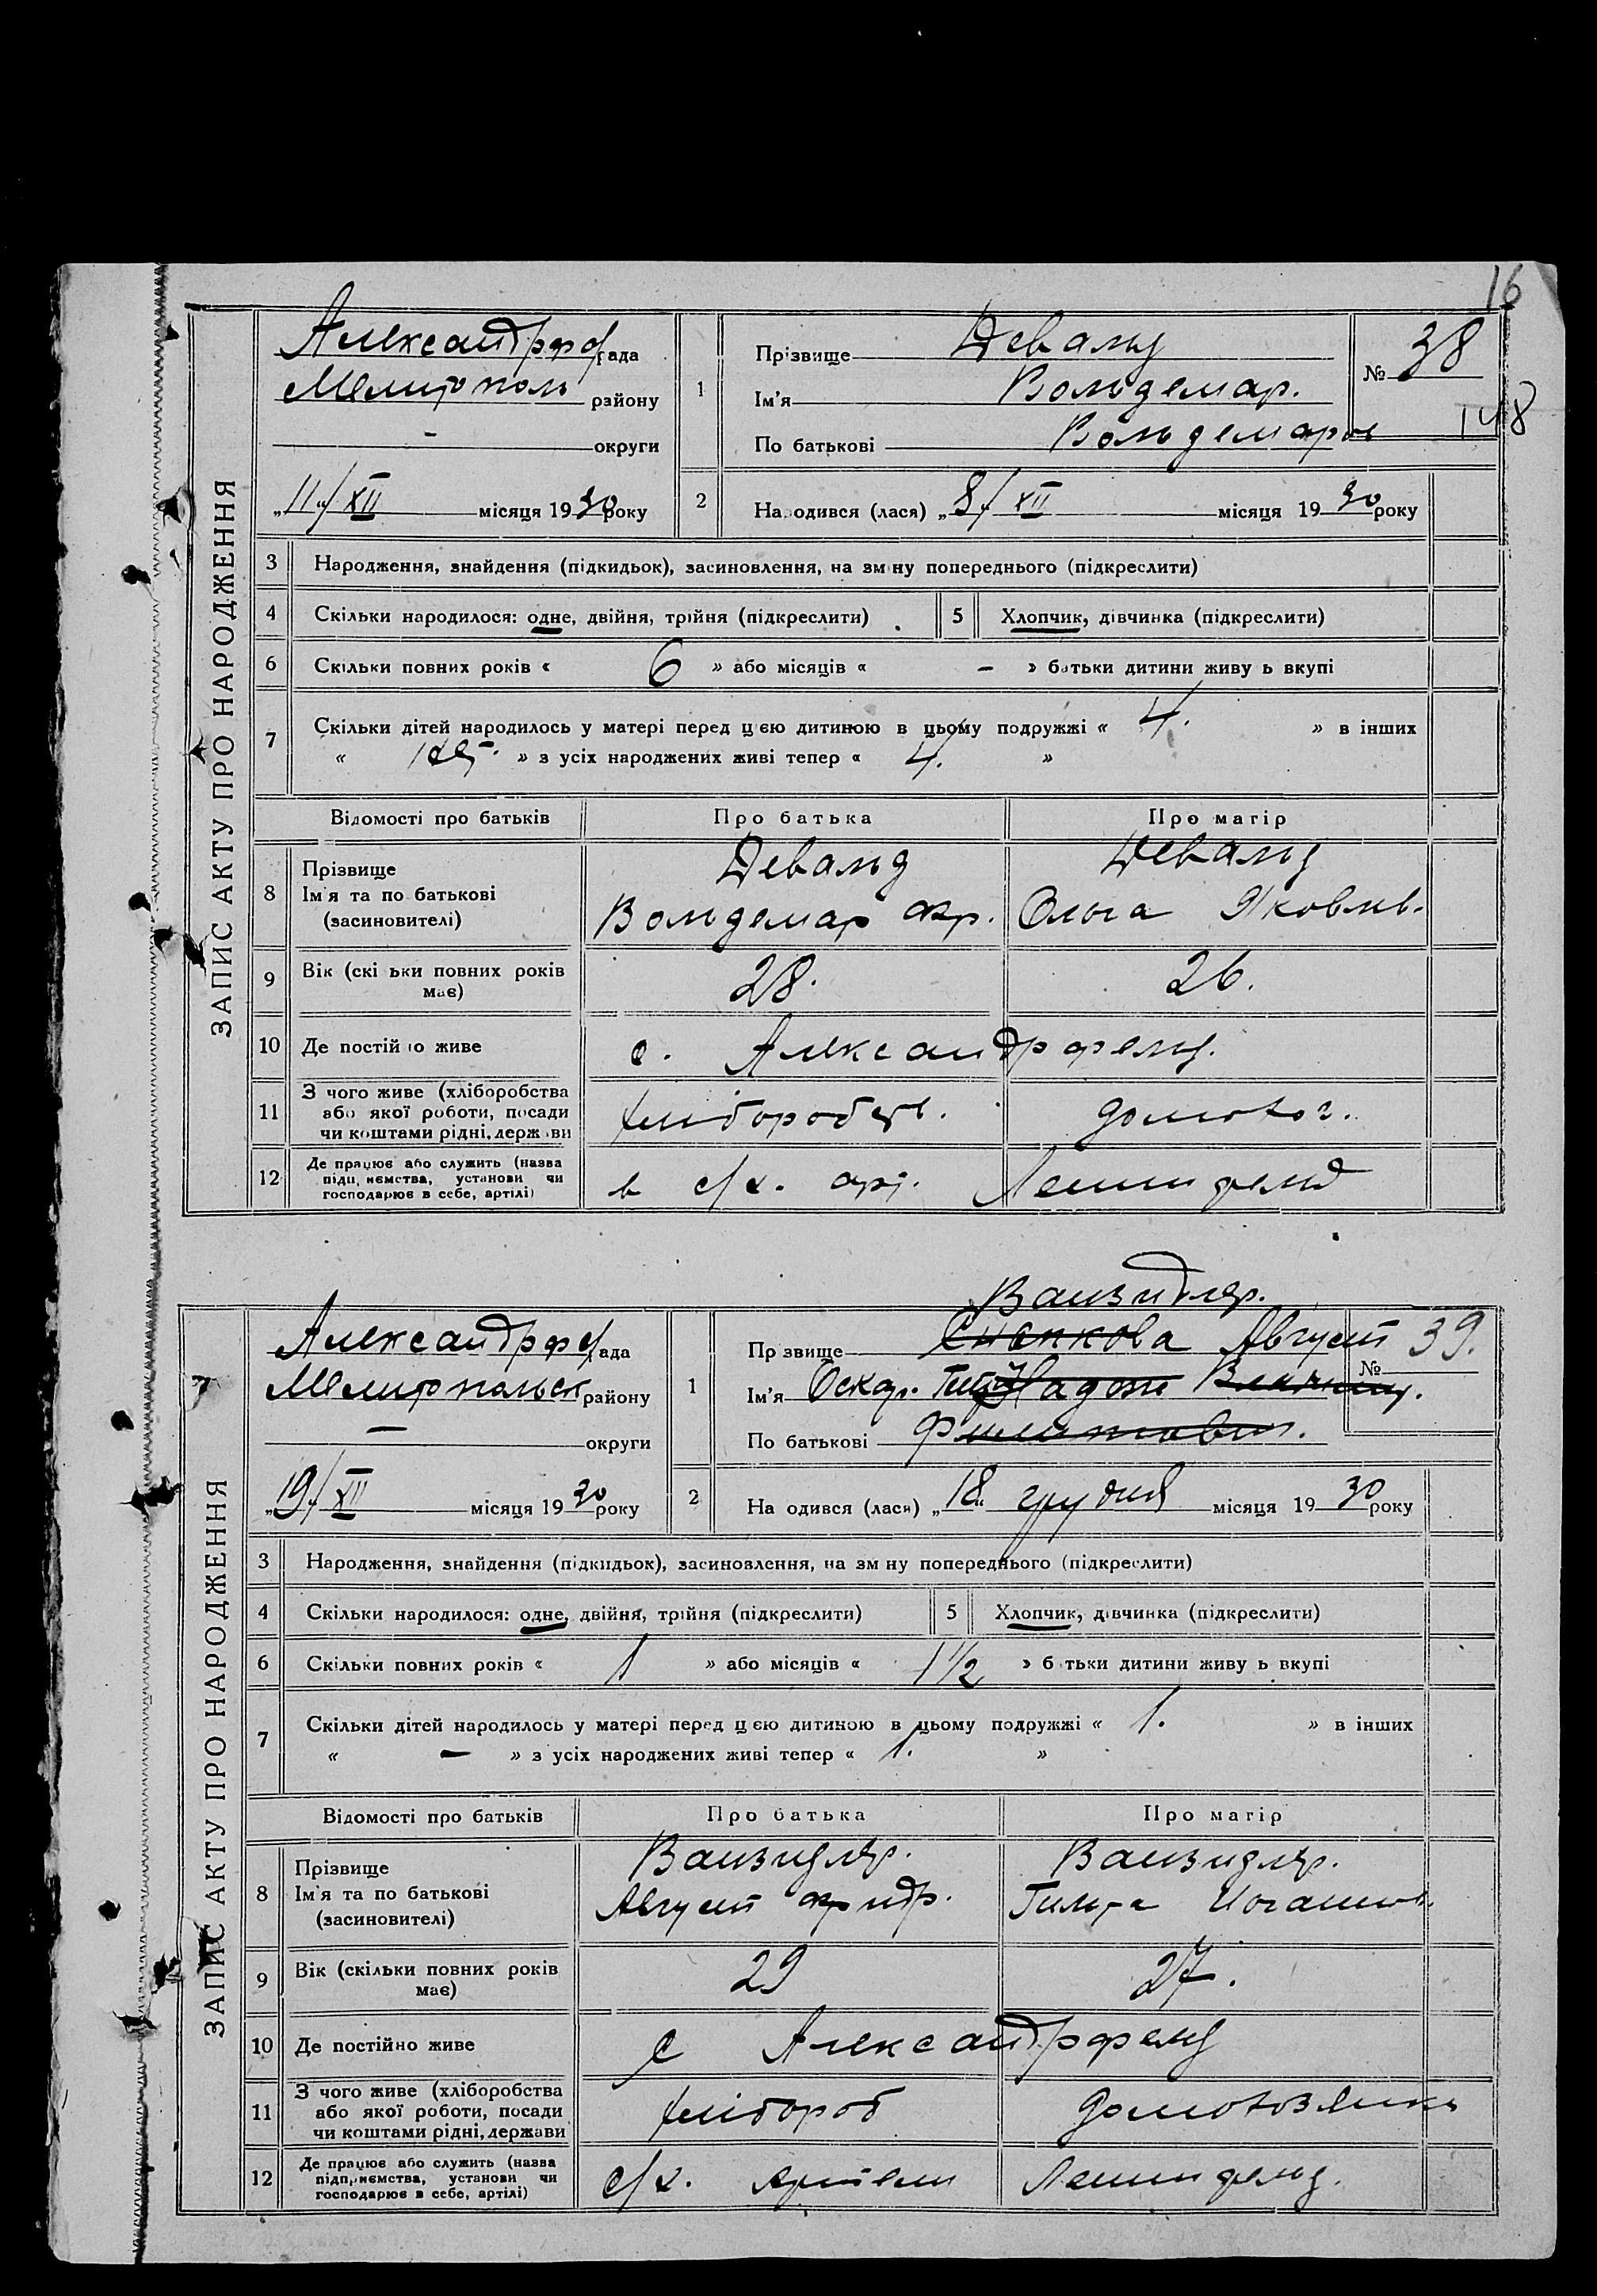 16
ЗАПИС АКТУ ПРО НАРОДЖЕННЯ
Александрфел рада
Мелитополь району
— округи
„11“/XII місяця 1930 року
1 Прізвище Девальд
Ім'я Вольдемар.
По батькові Вольдемаров
№ 38
148
2 Народився (лася) „8“/XII місяця 1930 року
3 Народження, знайдення (підкидьок), засиновлення, на зміну попереднього (підкреслити)
4 Скільки народилося: одне, двійня, трійня (підкреслити) 5 Хлопчик, дівчинка (підкреслити)
6 Скільки повних років « 6 » або місяців « – » батьки дитини живу ь вкупі
7 Скільки дітей народилось у матері перед цією дитиною в цьому подружжі « 4. » в інших
« » з усіх народжених живі тепер « 4. »
Відомості про батьків Про батька Про матір
8 Прізвище Девальд Девальд
Ім'я та по батькові Вольдемар Фр. Ольга Яковлев.
(засиновителі)
9 Вік (скі ьки повних років має) 28. 26.
10 Де постійно живе с. Александрфельд.
11 З чого живе (хліборобства або якої роботи, посади чи коштами рідні, держави хліборобств. домохоз.
12 Де працює або служить (назва підприємства, установи чи господарює в себе, артілі) в с/х. арт. Ленинфельд
ЗАПИС АКТУ ПРО НАРОДЖЕННЯ
Александрфел рада
Мелитопольск району
— округи
„19“/XII місяця 1930 року
Ванзидлер.
1 Прізвище Снєпкова Август
№ 39.
Ім'я Оскар.
По батькові
2 На одився (лася) „18“ грудня місяця 1930 року
3 Народження, знайдення (підкидьок), засиновлення, на зм ну попереднього (підкреслити)
4 Скільки народилося: одне, двійня, трійня (підкреслити) 5 Хлопчик, дівчинка (підкреслити)
6 Скільки повних років « 1 » або місяців « 1½ » б тьки дитини живу ь вкупі
7 Скільки дітей народилось у матері перед цією дитиною в цьому подружжі « 1. » в інших
« — » з усіх народжених живі тепер « 1. »
Відомості про батьків Про батька Про матір
8 Прізвище Ванзидлер. Ванзидлер.
Ім'я та по батькові Август Фридр. Гильда Иоганнов.
(засиновителі)
9 Вік (скільки повних років має) 29 27.
10 Де постійно живе с Александрфельд
11 З чого живе (хліборобства або якої роботи, посади чи коштами рідні, держави хлібороб домохозяйка
12 Де працює або служить (назва підприємства, установи чи господарює в себе, артілі) с/х. артели Ленинфельд.